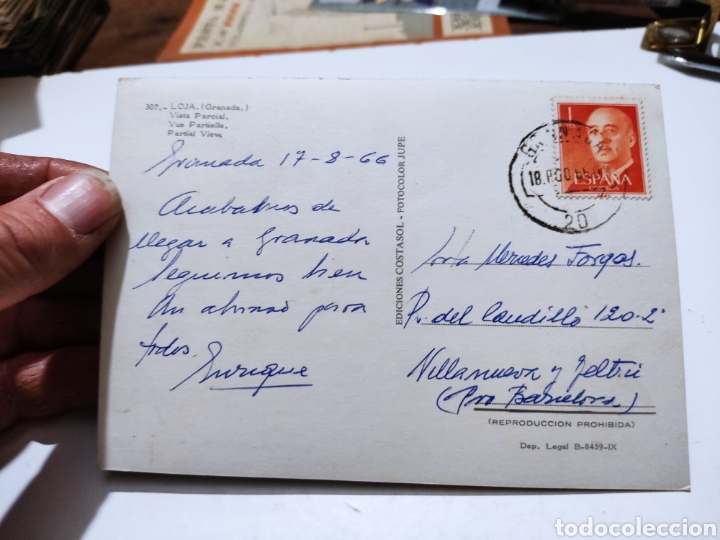 307. - LOJA. (Granada.)
Vista Parcial.
Vue Partielle.
Partial View.
Granada 17-8-66
Acabamos de
llegar a Granada
Seguimos bien
Un abrazo para
todos.
Enrique
EDICIONES COSTASOL - FOTOCOLOR JUPE
1
ESPAÑA
20
Srta Mercedes Forgas.
Pv. del Caudillo 120-2º
Villanueva y Geltrú
(Pro Barcelona.)
(REPRODUCCION PROHIBIDA)
Dep. Legal B-8459-IX
todocoleccion